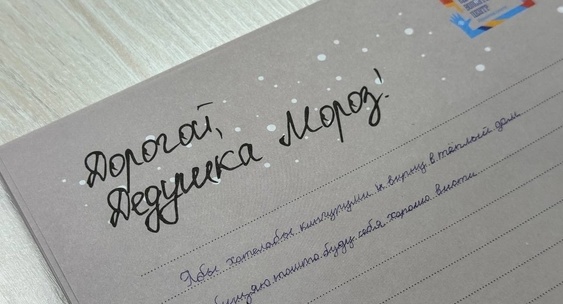 Дорогой,
Дедушка Мороз!
Ябы хотелабы кингуруми и вирну в тёплый дом
буду себя хорошо вести